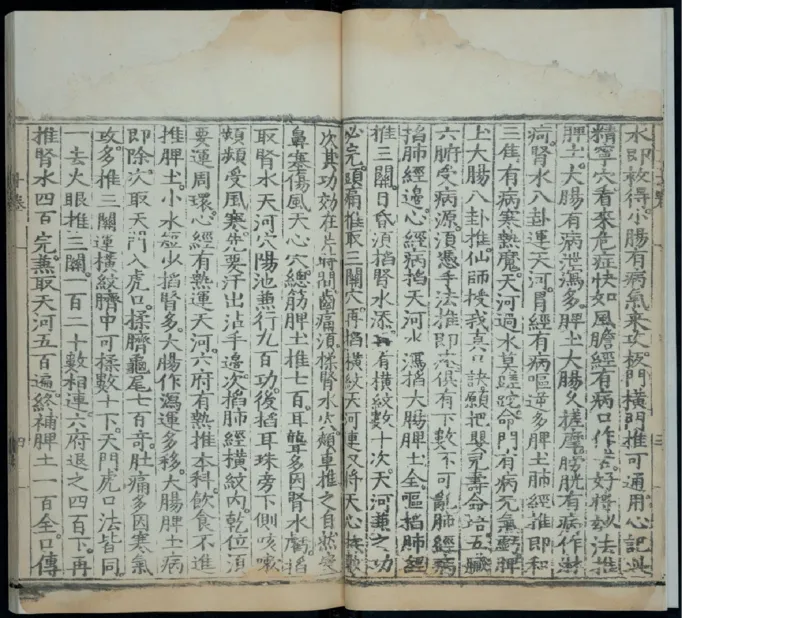 水即救得小腸有病氣來攻板門橫門推可通用心記此
精寧穴看來危症快如風膽經有病口作苦好將妙法推
脾土大腸有病泄瀉多脾土大腸久搓摩膀胱有病作淋
疴腎水八卦運天河胃經有病嘔逆多脾土肺經推即和
三焦有病寒熱魔天河過水莫蹉跎命門有病元氣虧脾
上大腸八卦推仙師授我真口訣願把嬰兒壽命培五臟
六腑受病源須憑手法推即痊俱有下數不可亂肺經病
掐肺經邊心經病掐天河水瀉掐大腸脾土全嘔掐肺經
推三關目昏須掐腎水添再有橫紋數十次天河兼之功
必完頭痛推取三關穴再掐橫紋天河連又將天心揉數
次其功效在片時間齒痛須揉腎水穴頰車推之自然安
鼻塞傷風天心穴總筋脾土推七百耳聾多因腎水虧掐
取腎水天河穴陽池兼行九百功後掐耳珠旁下側咳嗽
頻頻受風寒先要汗出沾手邊次掐肺經橫紋內乾位須
要運周環心經有熱運天河六府有熱推本科飲食不進
推脾土小水短少掐腎多大腸作瀉運多移大腸脾土病
即除次取天門入虎口揉臍龜尾七百奇肚痛多因寒氣
攻多推三關運橫紋臍中可揉數十下天門虎口法皆同
一去火眼推三關一百二十數相連六府退之四百下再
推腎水四百完兼取天河五百遍終補脾土一百全口傳
三
四